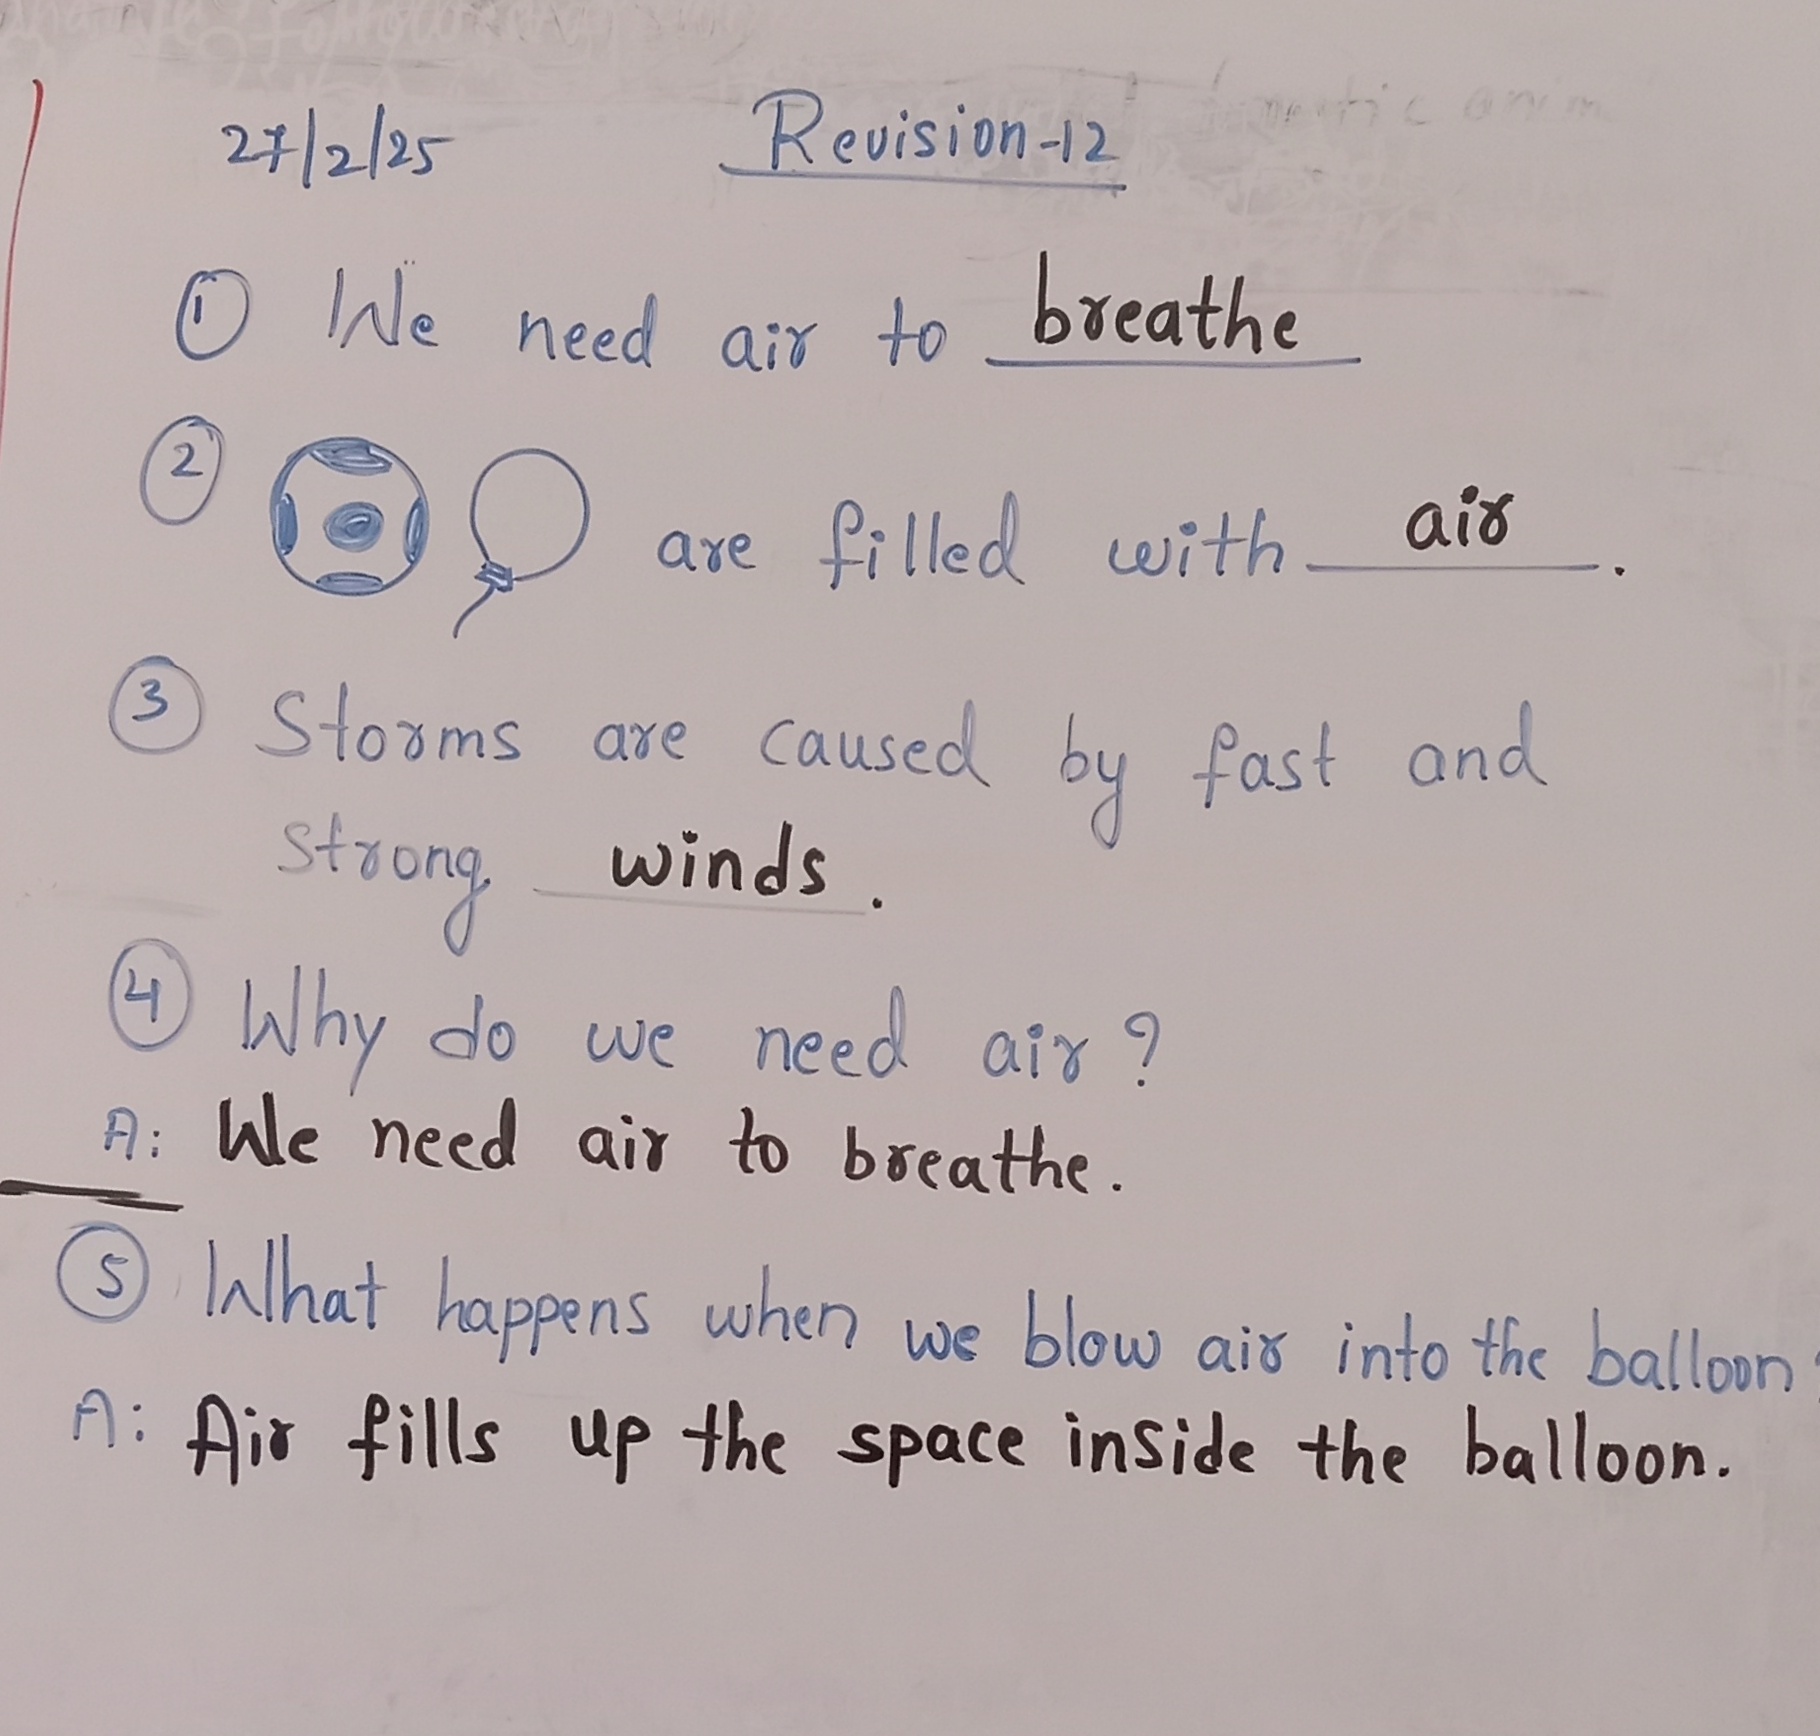 27/2/25 Revision-12
① We need air to breathe
② are filled with air.
③ Storms are caused by fast and
strong winds.
④ Why do we need air?
A: We need air to breathe.
⑤ What happens when we blow air into the balloon
A: Air fills up the space inside the balloon.